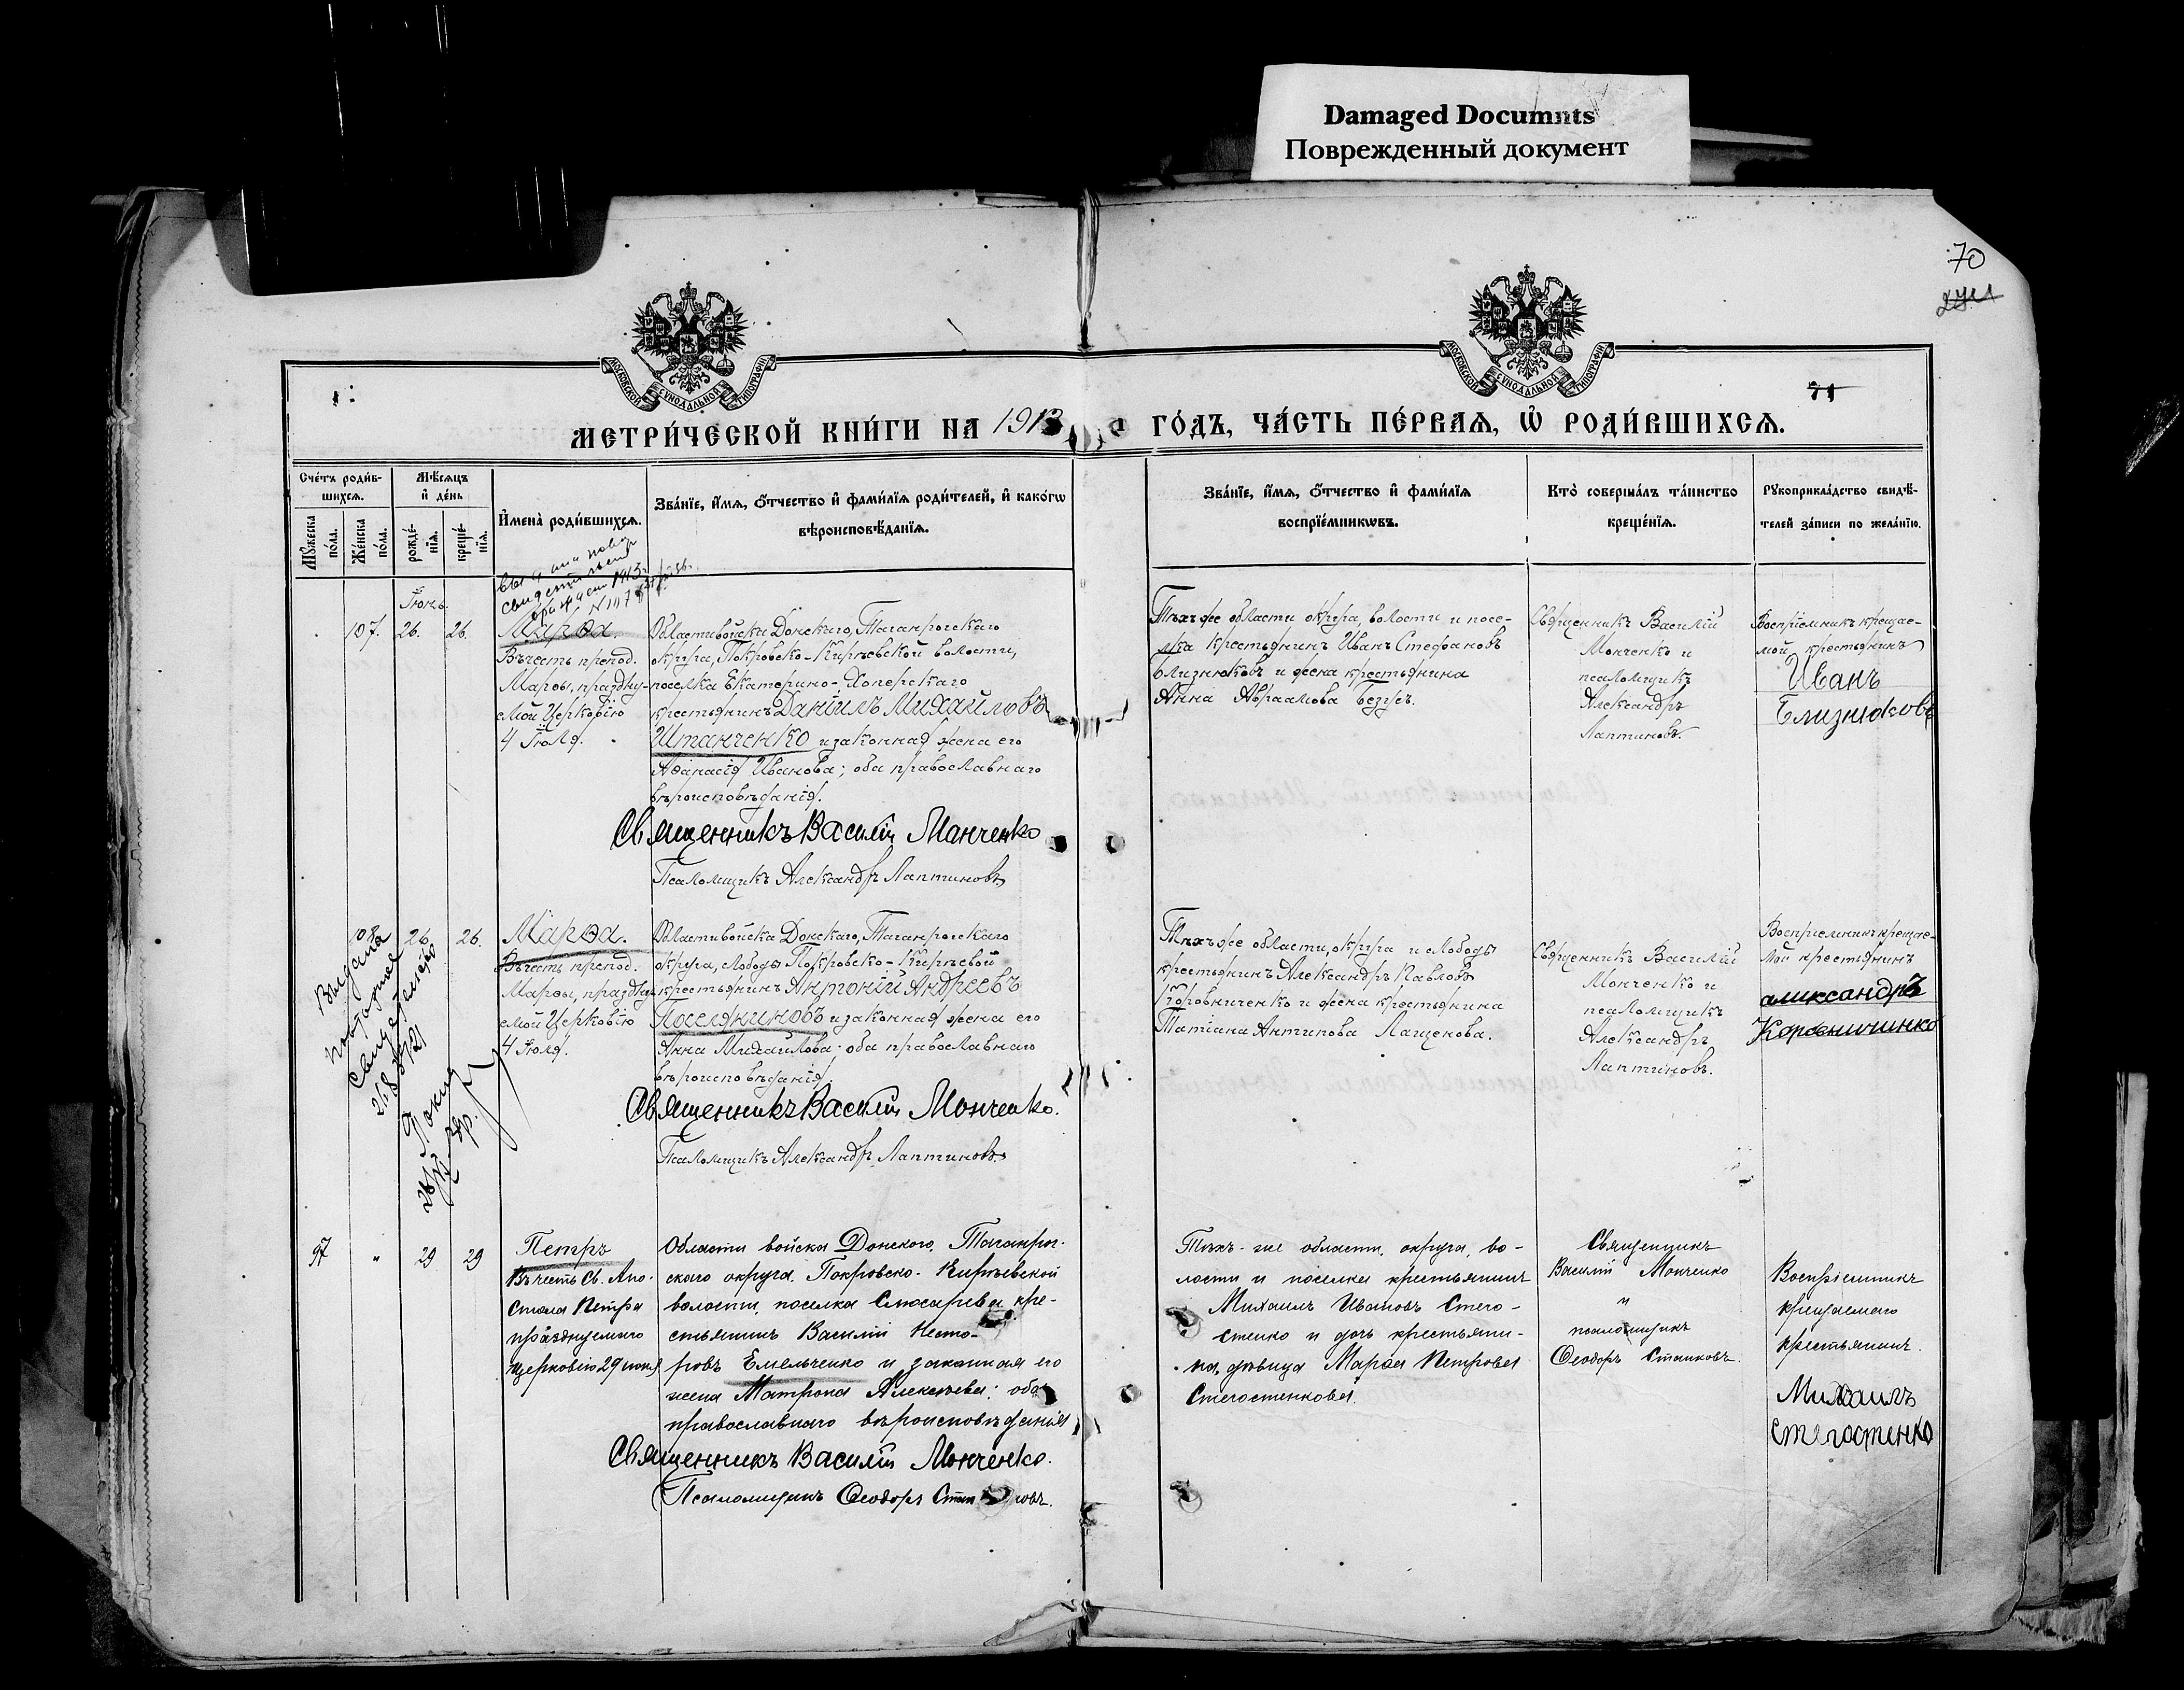 Damaged Documnts
Поврежденный документ
70
МОСКОВСКОЙ СѴНОДАЛЬНОЙ ТИПОГРАФІИ
МОСКОВСКОЙ СѴНОДАЛЬНОЙ ТИПОГРАФІИ
71
МЕТРИ́ЧЕСКОЙ КНИ́ГИ НА 1913 ГО́ДЪ, ЧА́СТЬ ПЕ́РВАѦ, Ѡ҆ РОДИ́ВШИХСѦ.
Сче́тъ роди́в-
шихсѧ.
Мꙋжеска по́ла.
Же́нска по́ла.
Мѣ́сѧцъ
и҆ де́нь
рожде́-
нїѧ.
креще́-
нїѧ.
И҆мена̀ роди́вшихсѧ.
Зва́нїе, и҆́мѧ, ѻ҆́тчество и҆ фами́лїѧ роди́телей, и҆ како́гѡ
вѣроисповѣ́данїѧ.
Зва́нїе, и҆́мѧ, ѻ҆́тчество и҆ фами́лїѧ
воспрїе́мникѡвъ.
Кто̀ соверша́лъ та́инство
креще́нїѧ.
Рꙋкоприкла́дство свидѣ́-
телей за́писи по жела́нїю.
Іюнь.
107. 26. 26.
Марѳа.
Въ честь препод.
Марѳы, праздну-
емой Церковію
4 Іюля.
Области войска Донскаго, Таганрогскаго
округа, Покровско-Кирѣевской волости,
поселка Екатерино-Хоперскаго
крестьянинъ Даніилъ Михайловъ
Штанченко и законная жена его
Аѳанасія Иванова; оба православнаго
вѣроисповѣданія.
Священникъ Василій Мончено
Псаломщикъ Александръ Лаптиновъ
Тѣхъ же области округа, волости и посе-
лка крестьянинъ Иванъ Стефановъ
Близнюковъ и жена крестьянина
Анна Авраамова Безусъ.
Священникъ Василій
Монченко и
псаломщикъ
Александръ
Лаптиновъ.
Воспріемникъ крещае-
мой крестьянинъ
Иванъ
Близнюковъ
108 26. 26.
Выдана
Марѳа.
Въ честь препод.
Марѳы, праздну-
емой Церковію
4 Іюля.
Области войска Донскаго, Таганрогскаго
округа, слободы Покровско-Кирѣевой
крестьянинъ Антоній Андреевъ
Поселяниновъ и законная жена его
Анна Михайлова; оба православнаго
вѣроисповѣданія
Священникъ Василій Монченко.
Псаломщикъ Александръ Лаптиновъ
Тѣхъ же области, округа и слободы
крестьянинъ Александръ Павловъ
Коровниченко и жена крестьянина
Татіана Антипова Лащенова.
Священникъ Василій
Монченко и
псаломщикъ
Александръ
Лаптиновъ.
Воспріемникъ крещае-
мой крестьянинъ
александръ
Коровничинко
97 " 29 29
Петръ
Въ честь Св. Апо-
стола Петра
празднуемаго
Церковію 29 іюня
Области войска Донского, Таганрог-
скаго округа, Покровско-Кирѣевской
волости, поселка Слюсарева кре-
стьянинъ Василій Несто-
ровъ Емельченко и законная его
жена Матрона Алексѣева; оба
православнаго вѣроисповѣданія
Священникъ Василій Монченко.
Псаломщикъ Ѳеодоръ Станковъ.
Тѣхъ-же области, округа, во-
лости и поселка крестьянинъ
Михаилъ Ивановъ Стего-
стенко и дочь крестьяни-
на, дѣвица Марѳа Петрова
Стегостенкова.
Священникъ
Василій Монченко
и
псаломщикъ
Ѳеодоръ Станковъ.
Воспріемникъ
крещаемаго
крестьянинъ
Михаилъ
Стегостенко